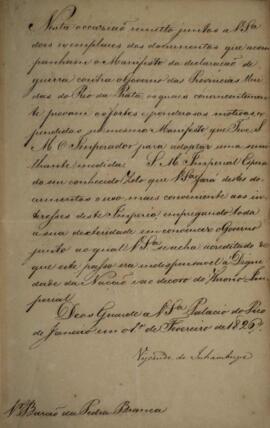 Nesta occasião remetto juntos a V.Sa
dois exemplares dos documentos que acom-
panharem o Manifesto da declaração de
guerra contra o Governo das Provincias Uni-
das do Rio da Prata, os quaes concernentemen-
te provam os fortes e ponderosos motivos, ex-
pendidos no mesmo Manifesto que Teve S.
M. O Imperador para adoptar uma seme-
lhante medida: S. M. Imperial Espera
do seu conhecido zelo que V.Sa fará destes do-
cumentos o uso mais conveniente aos in-
teresses deste Imperio empregando toda
a sua dexteridade em convencer o Governo
junto ao qual V.Sa se acha acreditado de
que este passo era indispensavel á Digni-
dade da Nação e ao decoro do Throno Im-
perial.
Deos Guarde a V.Sa Palacio do Rio
de Janeiro em 1º de Fevereiro de 1826.
Visconde de Inhambupe
Sr. Barão da Pedra Branca